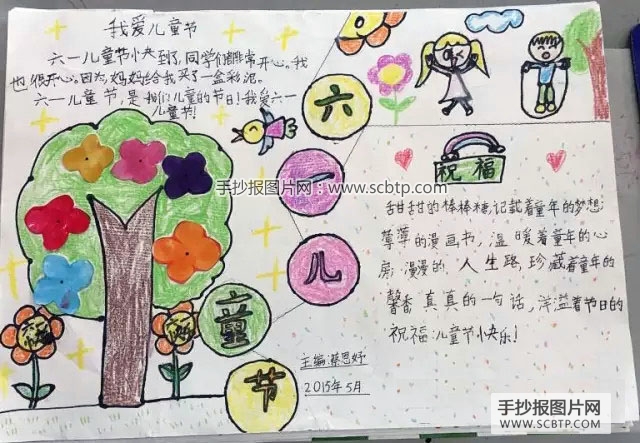 我爱儿童节
六一儿童节快到了,同学们都非常开心。我
也很开心。因为,妈妈给我买了一盒彩泥。
六一儿童节,是咱们儿童的节日!我爱六一
儿童节!
六
一
儿
童
节
祝福
甜甜的棒棒糖,记载着童年的梦想;
薄薄的漫画书,温暖着童年的心
房;漫漫的人生路,珍藏着童年的
馨香;真真的一句话,洋溢着节日的
祝福:儿童节快乐!
主编:蔡恩妤
2015年5月
手抄报图片网:www.scbtp.com
手抄报图片网
WWW.SCBTP.COM